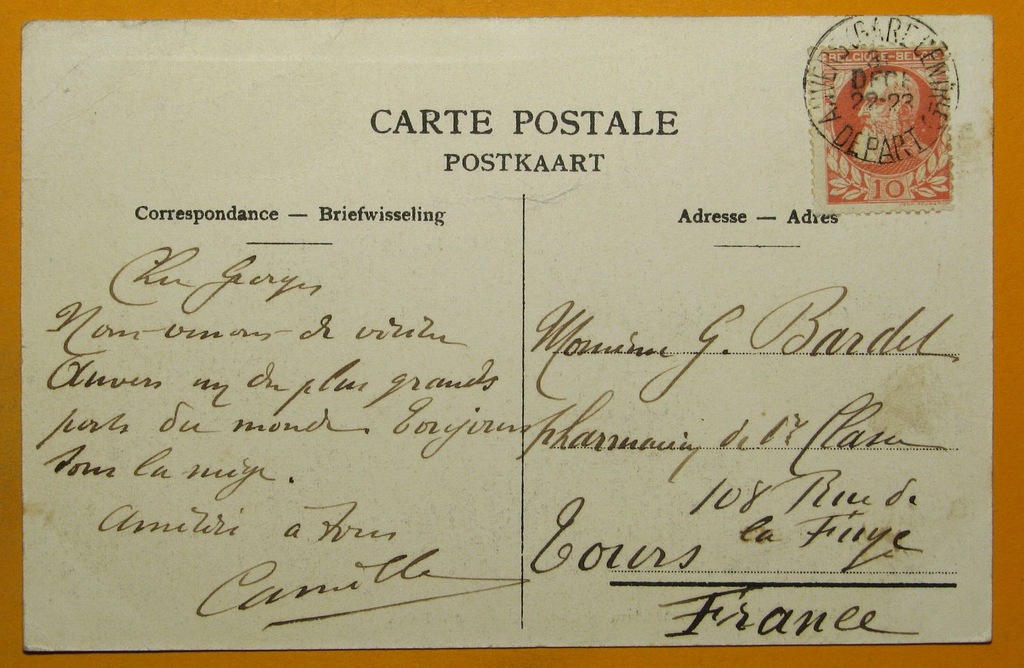 CARTE POSTALE
POSTKAART
Correspondance — Briefwisseling
Cher Georges
Nous venons de visiter
Anvers un des plus grands
ports du monde. Toujours
sous la neige.
Amitiés à tous
Camille
Adresse — Adres
Monsieur G. Bardel
pharmacien de 1re Classe
108 Rue de
la Fuye
Tours
France
ANVERS (GARE CENTRALE)
DECE
22-23
DEPART
BELGIQUE-BELGIË
10